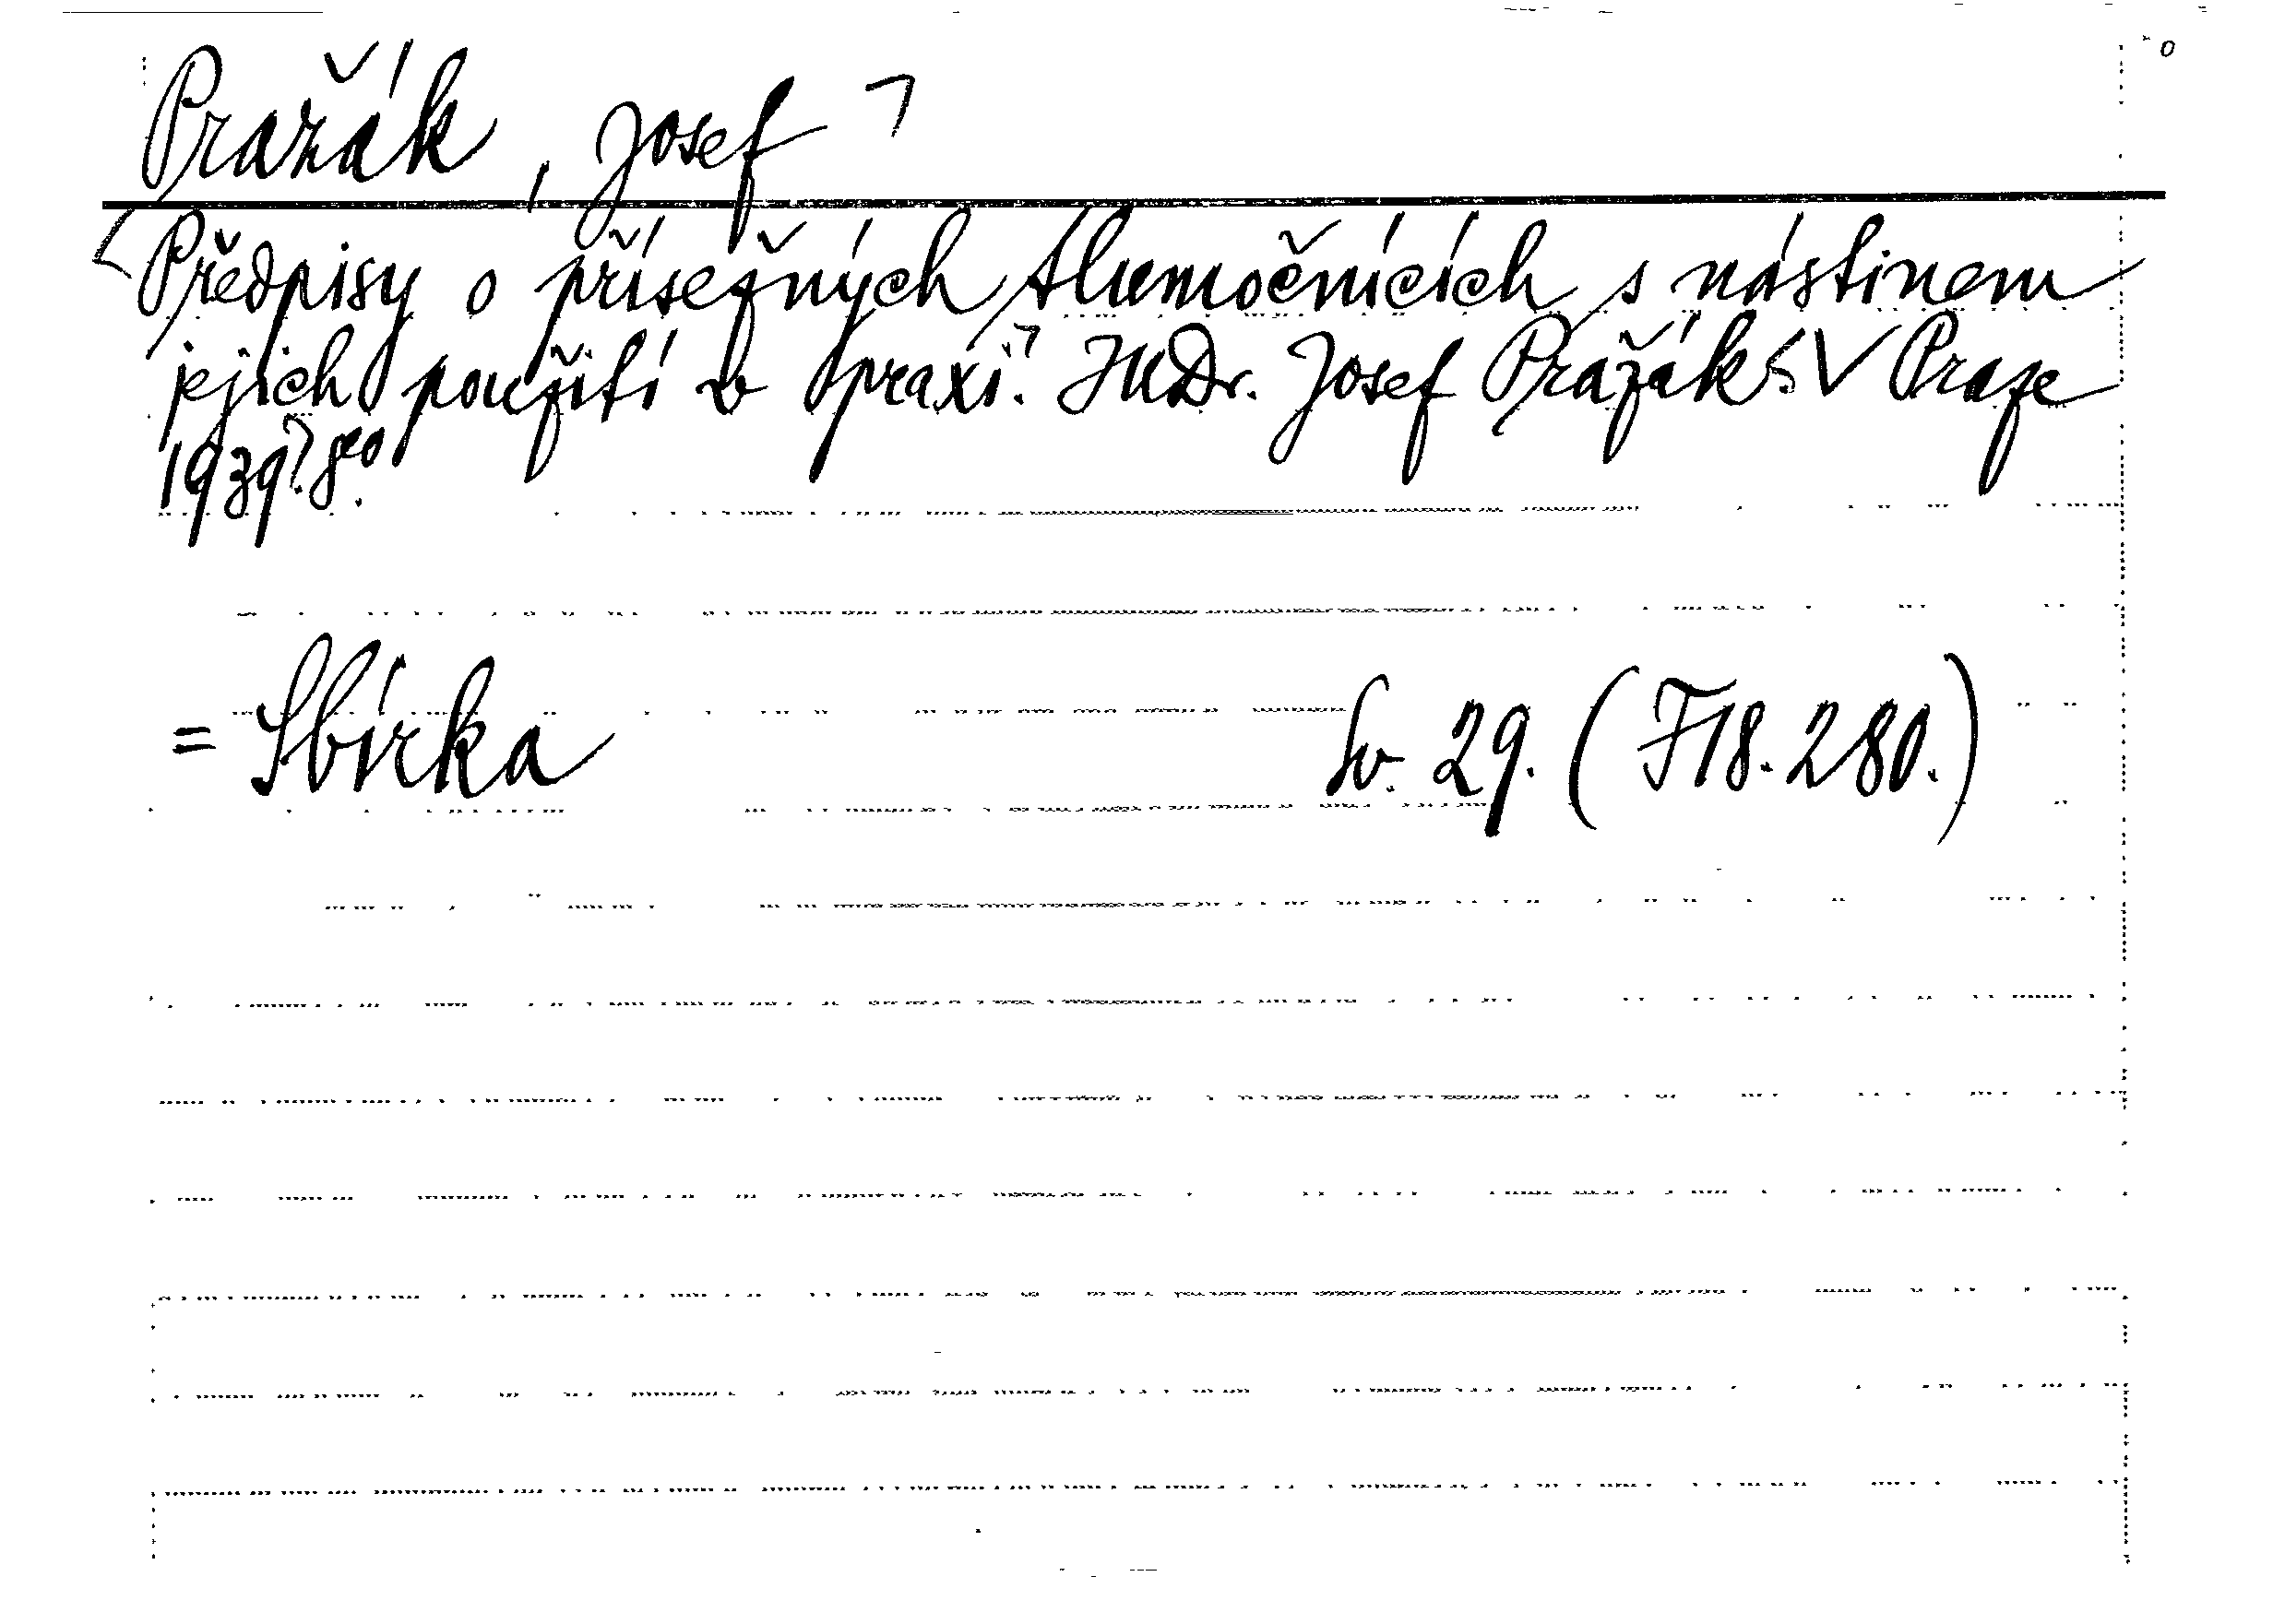 Pražák, Josef
Předpisy o přísežných tlumočnících s nástinem
jejich použití v praxi. JUDr. Josef Pražák. V Praze
1939. 8°.
= Sbírka Sv. 29. (F18.280.)